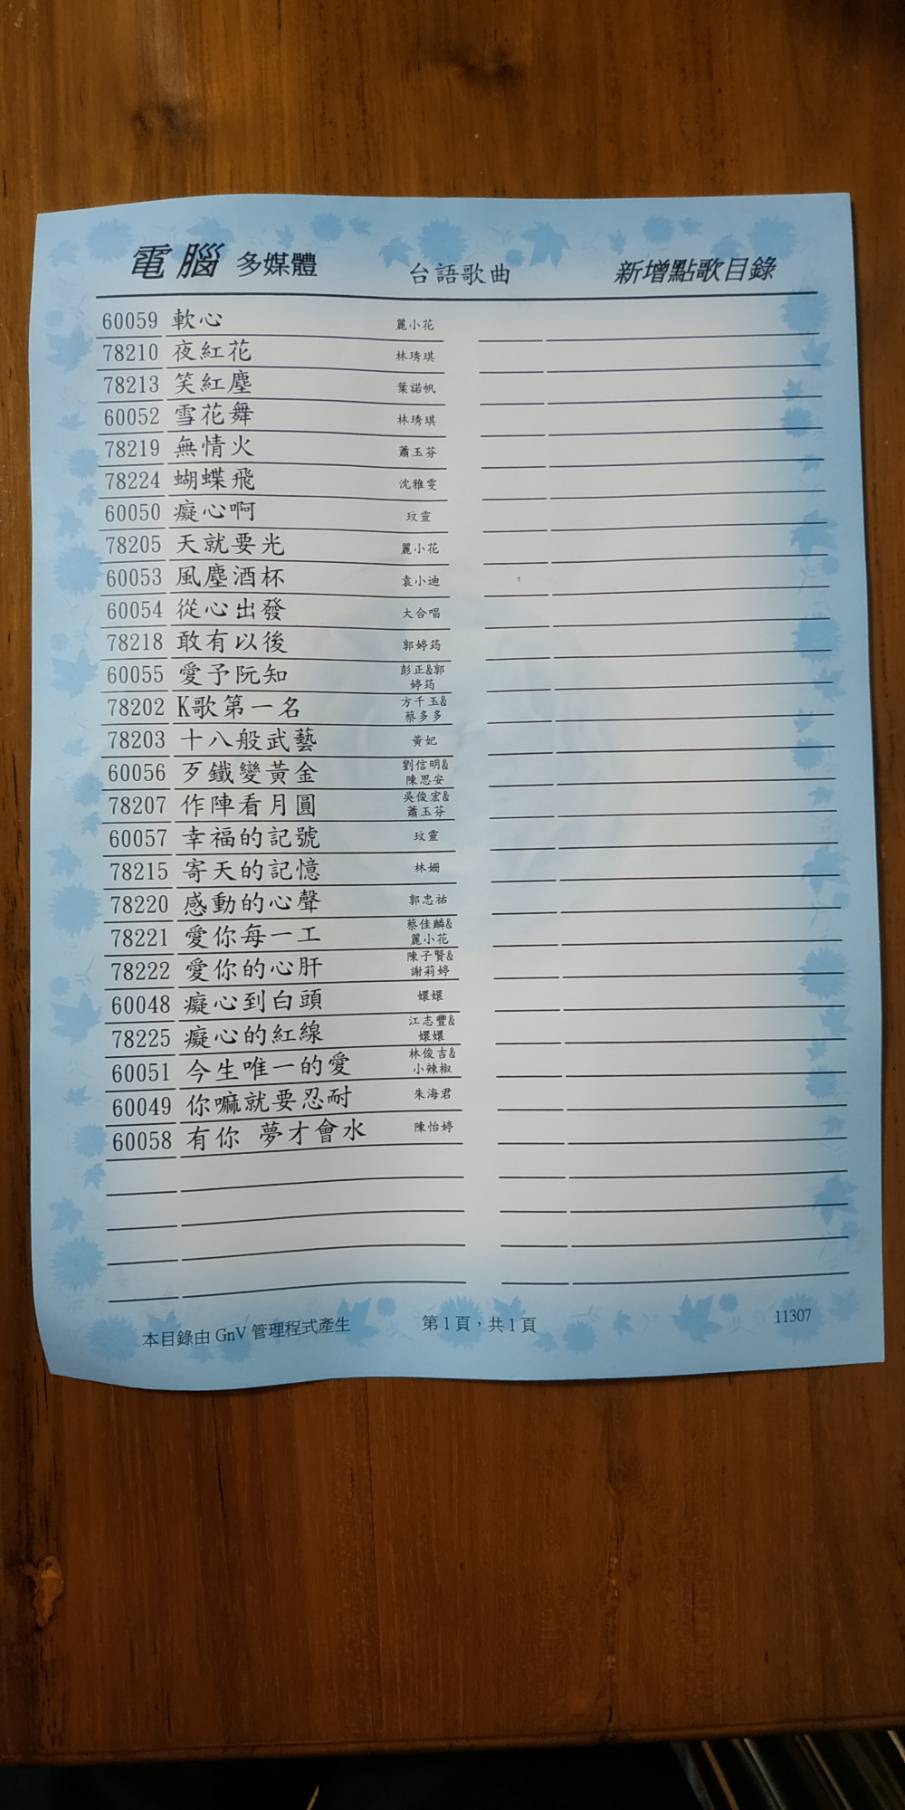 電腦 多媒體 台語歌曲 新增點歌目錄
60059 軟心 麗小花
78210 夜紅花 林琇琪
78213 笑紅塵 葉諾帆
60052 雪花舞 林琇琪
78219 無情火 蕭玉芬
78224 蝴蝶飛 沈雅雯
60050 癡心啊 玟靈
78205 天就要光 麗小花
60053 風塵酒杯 袁小迪
60054 從心出發 大合唱
78218 敢有以後 郭婷筠
60055 愛予阮知 彭正&郭婷筠
78202 K歌第一名 方千玉&蔡多多
78203 十八般武藝 黃妃
60056 歹鐵變黃金 劉信明&陳思安
78207 作陣看月圓 吳俊宏&蕭玉芬
60057 幸福的記號 玟靈
78215 寄天的記憶 林姍
78220 感動的心聲 郭忠祐
78221 愛你每一工 蔡佳麟&麗小花
78222 愛你的心肝 陳子賢&謝莉婷
60048 癡心到白頭 嬛嬛
78225 癡心的紅線 江志豐&嬛嬛
60051 今生唯一的愛 林俊吉&小辣椒
60049 你嘛就要忍耐 朱海君
60058 有你 夢才會水 陳怡婷
本目錄由 GnV 管理程式產生 第1頁，共1頁 11307